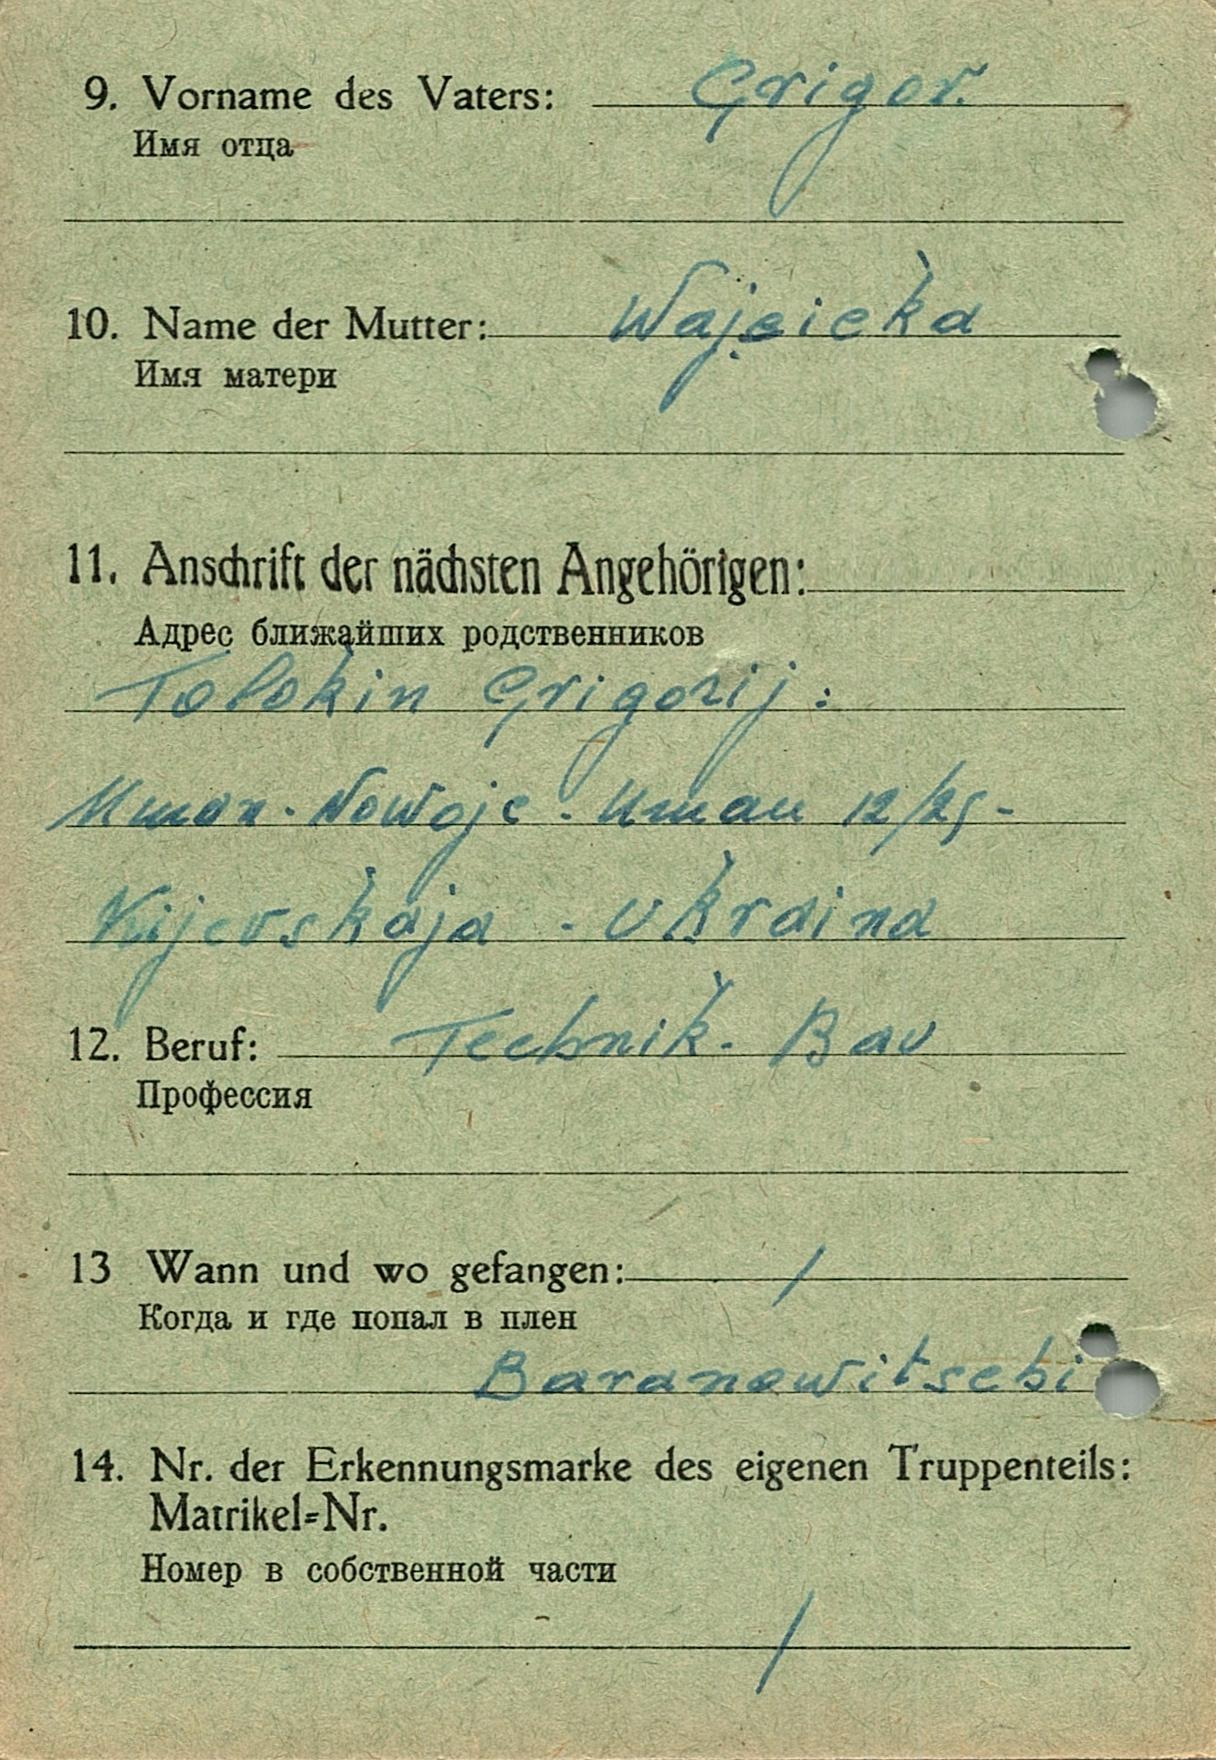 9. Vorname des Vaters: Grigor.
Имя отца
10. Name der Mutter: Wajcicka
Имя матери
11. Anschrift der nächsten Angehörigen:
Адрес ближайших родственников
Tolokin Grigorij:
Uman - Nowoje - Uman 12/25 -
Kijevskaja - Ukraina
12. Beruf: Technik - Bau
Профессия
13 Wann und wo gefangen: /
Когда и где попал в плен
Baranowitschi
14. Nr. der Erkennungsmarke des eigenen Truppenteils:
Matrikel=Nr.
Номер в собственной части
/